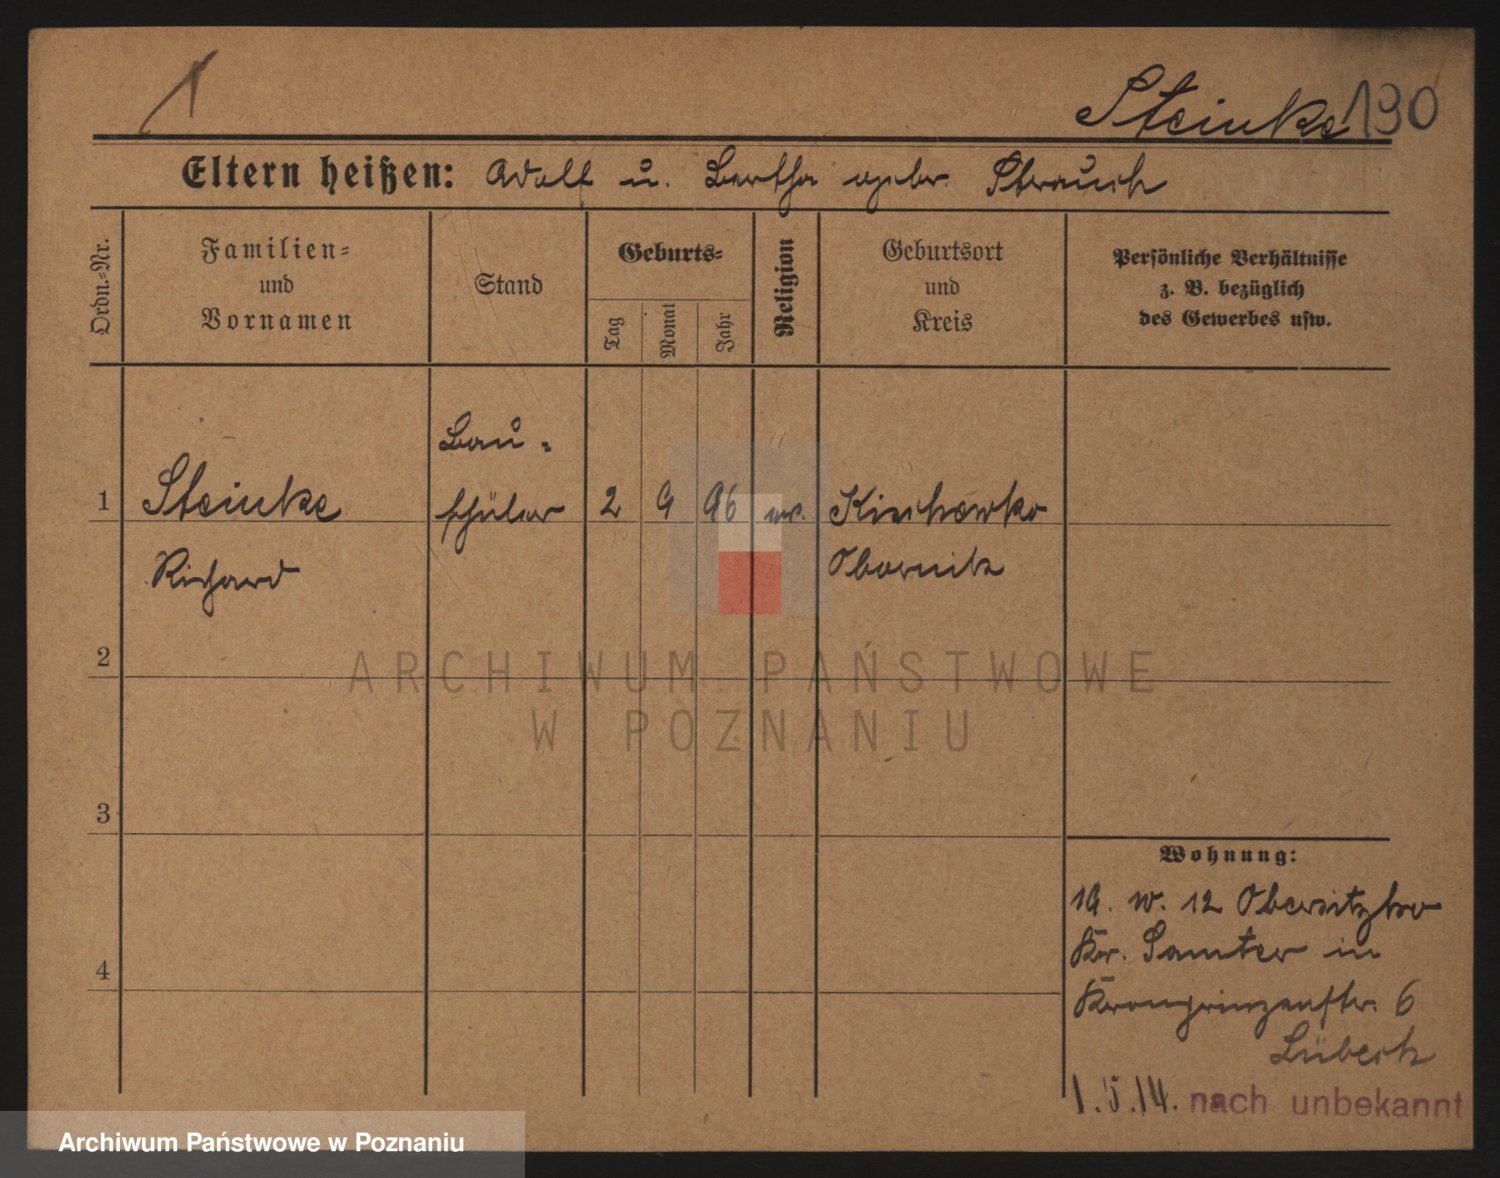 1
Steinke 190
Eltern heißen: Adolf u. Bertha gebr. Strauch
Ordn.-Nr.
Familien-
und
Vornamen
Stand
Geburts-
Tag
Monat
Jahr
Religion
Geburtsort
und
Kreis
Persönliche Verhältnisse
z. B. bezüglich
des Gewerbes usw.
Bau-
1 Steinke schüler 2 9 96 ev. Kischewko
Richard Obornik
2
ARCHIWUM PAŃSTWOWE
W POZNANIU
3
Wohnung:
19. IV. 12 Obersitzko
Kr. Samter in
4
Kronprinzenstr. 6
Lübeck
1.5.14. nach unbekannt
Archiwum Państwowe w Poznaniu